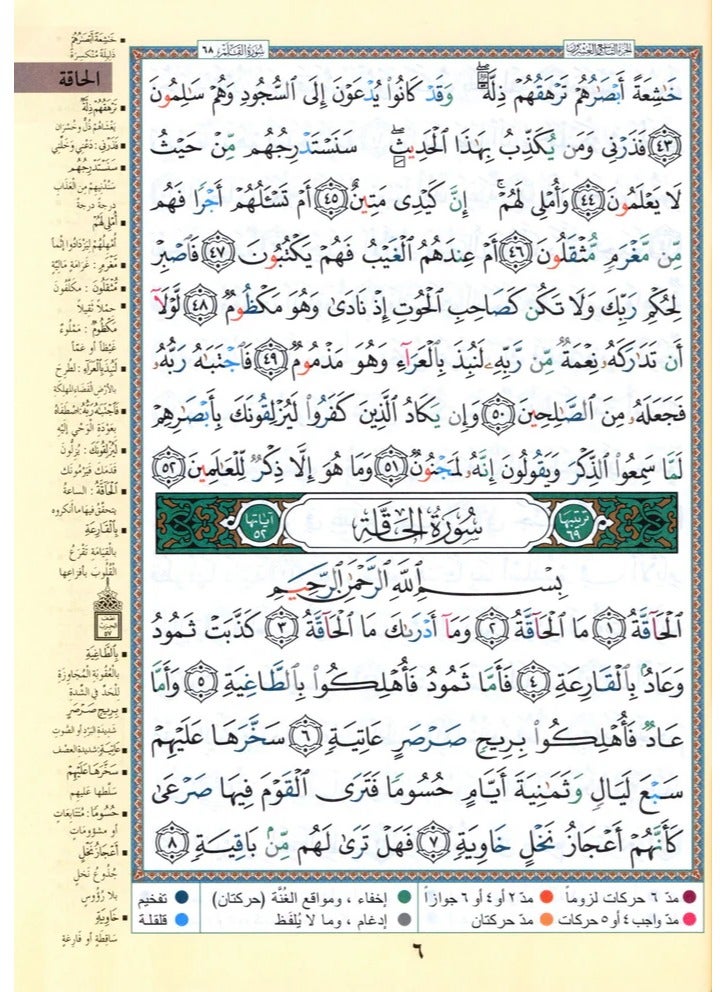 الجزء التاسع والعشرون
سُورَةُ القَلَم ٦٨
خَٰشِعَةً أَبْصَٰرُهُمْ تَرْهَقُهُمْ ذِلَّةٌ ۖ وَقَدْ كَانُوا۟ يُدْعَوْنَ إِلَى ٱلسُّجُودِ وَهُمْ سَٰلِمُونَ
﴿٤٣﴾ فَذَرْنِى وَمَن يُكَذِّبُ بِهَٰذَا ٱلْحَدِيثِ ۖ سَنَسْتَدْرِجُهُم مِّنْ حَيْثُ
لَا يَعْلَمُونَ ﴿٤٤﴾ وَأُمْلِى لَهُمْ ۚ إِنَّ كَيْدِى مَتِينٌ ﴿٤٥﴾ أَمْ تَسْـَٔلُهُمْ أَجْرًا فَهُم
مِّن مَّغْرَمٍ مُّثْقَلُونَ ﴿٤٦﴾ أَمْ عِندَهُمُ ٱلْغَيْبُ فَهُمْ يَكْتُبُونَ ﴿٤٧﴾ فَٱصْبِرْ
لِحُكْمِ رَبِّكَ وَلَا تَكُن كَصَاحِبِ ٱلْحُوتِ إِذْ نَادَىٰ وَهُوَ مَكْظُومٌ ﴿٤٨﴾ لَّوْلَآ
أَن تَدَٰرَكَهُۥ نِعْمَةٌ مِّن رَّبِّهِۦ لَنُبِذَ بِٱلْعَرَآءِ وَهُوَ مَذْمُومٌ ﴿٤٩﴾ فَٱجْتَبَٰهُ رَبُّهُۥ
فَجَعَلَهُۥ مِنَ ٱلصَّٰلِحِينَ ﴿٥٠﴾ وَإِن يَكَادُ ٱلَّذِينَ كَفَرُوا۟ لَيُزْلِقُونَكَ بِأَبْصَٰرِهِمْ
لَمَّا سَمِعُوا۟ ٱلذِّكْرَ وَيَقُولُونَ إِنَّهُۥ لَمَجْنُونٌ ﴿٥١﴾ وَمَا هُوَ إِلَّا ذِكْرٌ لِّلْعَٰلَمِينَ ﴿٥٢﴾
ترتيبها ٦٩
سُورَةُ الحَاقَّة
آياتها ٥٢
بِسْمِ ٱللَّهِ ٱلرَّحْمَٰنِ ٱلرَّحِيمِ
ٱلْحَآقَّةُ ﴿١﴾ مَا ٱلْحَآقَّةُ ﴿٢﴾ وَمَآ أَدْرَىٰكَ مَا ٱلْحَآقَّةُ ﴿٣﴾ كَذَّبَتْ ثَمُودُ
وَعَادٌۢ بِٱلْقَارِعَةِ ﴿٤﴾ فَأَمَّا ثَمُودُ فَأُهْلِكُوا۟ بِٱلطَّاغِيَةِ ﴿٥﴾ وَأَمَّا
عَادٌ فَأُهْلِكُوا۟ بِرِيحٍ صَرْصَرٍ عَاتِيَةٍ ﴿٦﴾ سَخَّرَهَا عَلَيْهِمْ
سَبْعَ لَيَالٍ وَثَمَٰنِيَةَ أَيَّامٍ حُسُومًا فَتَرَى ٱلْقَوْمَ فِيهَا صَرْعَىٰ
كَأَنَّهُمْ أَعْجَازُ نَخْلٍ خَاوِيَةٍ ﴿٧﴾ فَهَلْ تَرَىٰ لَهُم مِّنۢ بَاقِيَةٍ ﴿٨﴾
خَٰشِعَةً أَبْصَٰرُهُمْ
ذَلِيلَةً مُنْكَسِرَةً
الحاقة
تَرْهَقُهُمْ ذِلَّةٌ
يَغْشَاهُمْ ذُلٌّ وخُسْرَان
فَذَرْنِي: دَعْنِي وَخَلِّني
سَنَسْتَدْرِجُهُم
سَنُدْنِيهِم مِنَ العَذَابِ
درجة درجة
أُمْلِي لَهُمْ
أُمْهِلُهُمْ لِيَزْدَادُوا إِثْماً
مَغْرَمٍ: غَرَامَةٍ مَالِيَّةٍ
مُثْقَلُونَ: مُكَلَّفُونَ
حِمْلاً ثَقِيلاً
مَكْظُومٌ: مَمْلُوءٌ
غَيْظاً أو غَمّاً
لَنُبِذَ بِالْعَرَاءِ: لَطُرِحَ
بالأرْضِ الفَضَاءِ المُهْلِكة
فَاجْتَبَٰهُ رَبُّهُ: اصْطَفَاهُ
بِعَوْدَةِ الوَحْيِ إِلَيْهِ
لَيُزْلِقُونَكَ: يُزِلُّونَ
قَدَمَكَ فَيَرْمُونَكَ
الْحَاقَّةُ: الساعةُ
يتحقَّقُ فيها ما أنكروه
بِالْقَارِعَةِ
بالقيامَةِ تَقْرَعُ
القُلُوبَ بأفْزاعِها
نصف
الحزب
٥٧
بِالطَّاغِيَةِ
بالعُقُوبَةِ المُجَاوِزَةِ
لِلْحَدِّ في الشِّدَّة
بِرِيحٍ صَرْصَرٍ
شديدةِ البَرْدِ أو الصَّوْتِ
عَاتِيَةٍ: شديدة العَصْف
سَخَّرَهَا عَلَيْهِمْ
سَلَّطها عليهم
حُسُومًا: مُتَتَابِعَاتٍ
أو مشؤوماتٍ
أَعْجَازُ نَخْلٍ
جُذُوعُ نَخْلٍ
بلا رُؤُوسٍ
خَاوِيَةٍ
سَاقِطَةٍ أو فَارِغَةٍ
مدّ ٦ حركات لزوماً
مدّ ٢ أو ٤ أو ٦ جوازاً
إخفاء ، ومواقع الغُنَّة (حركتان)
تفخيم
مدّ واجب ٤ أو ٥ حركات
مدّ حركتان
إدغام ، وما لا يُلفَظ
قلقلة
٦